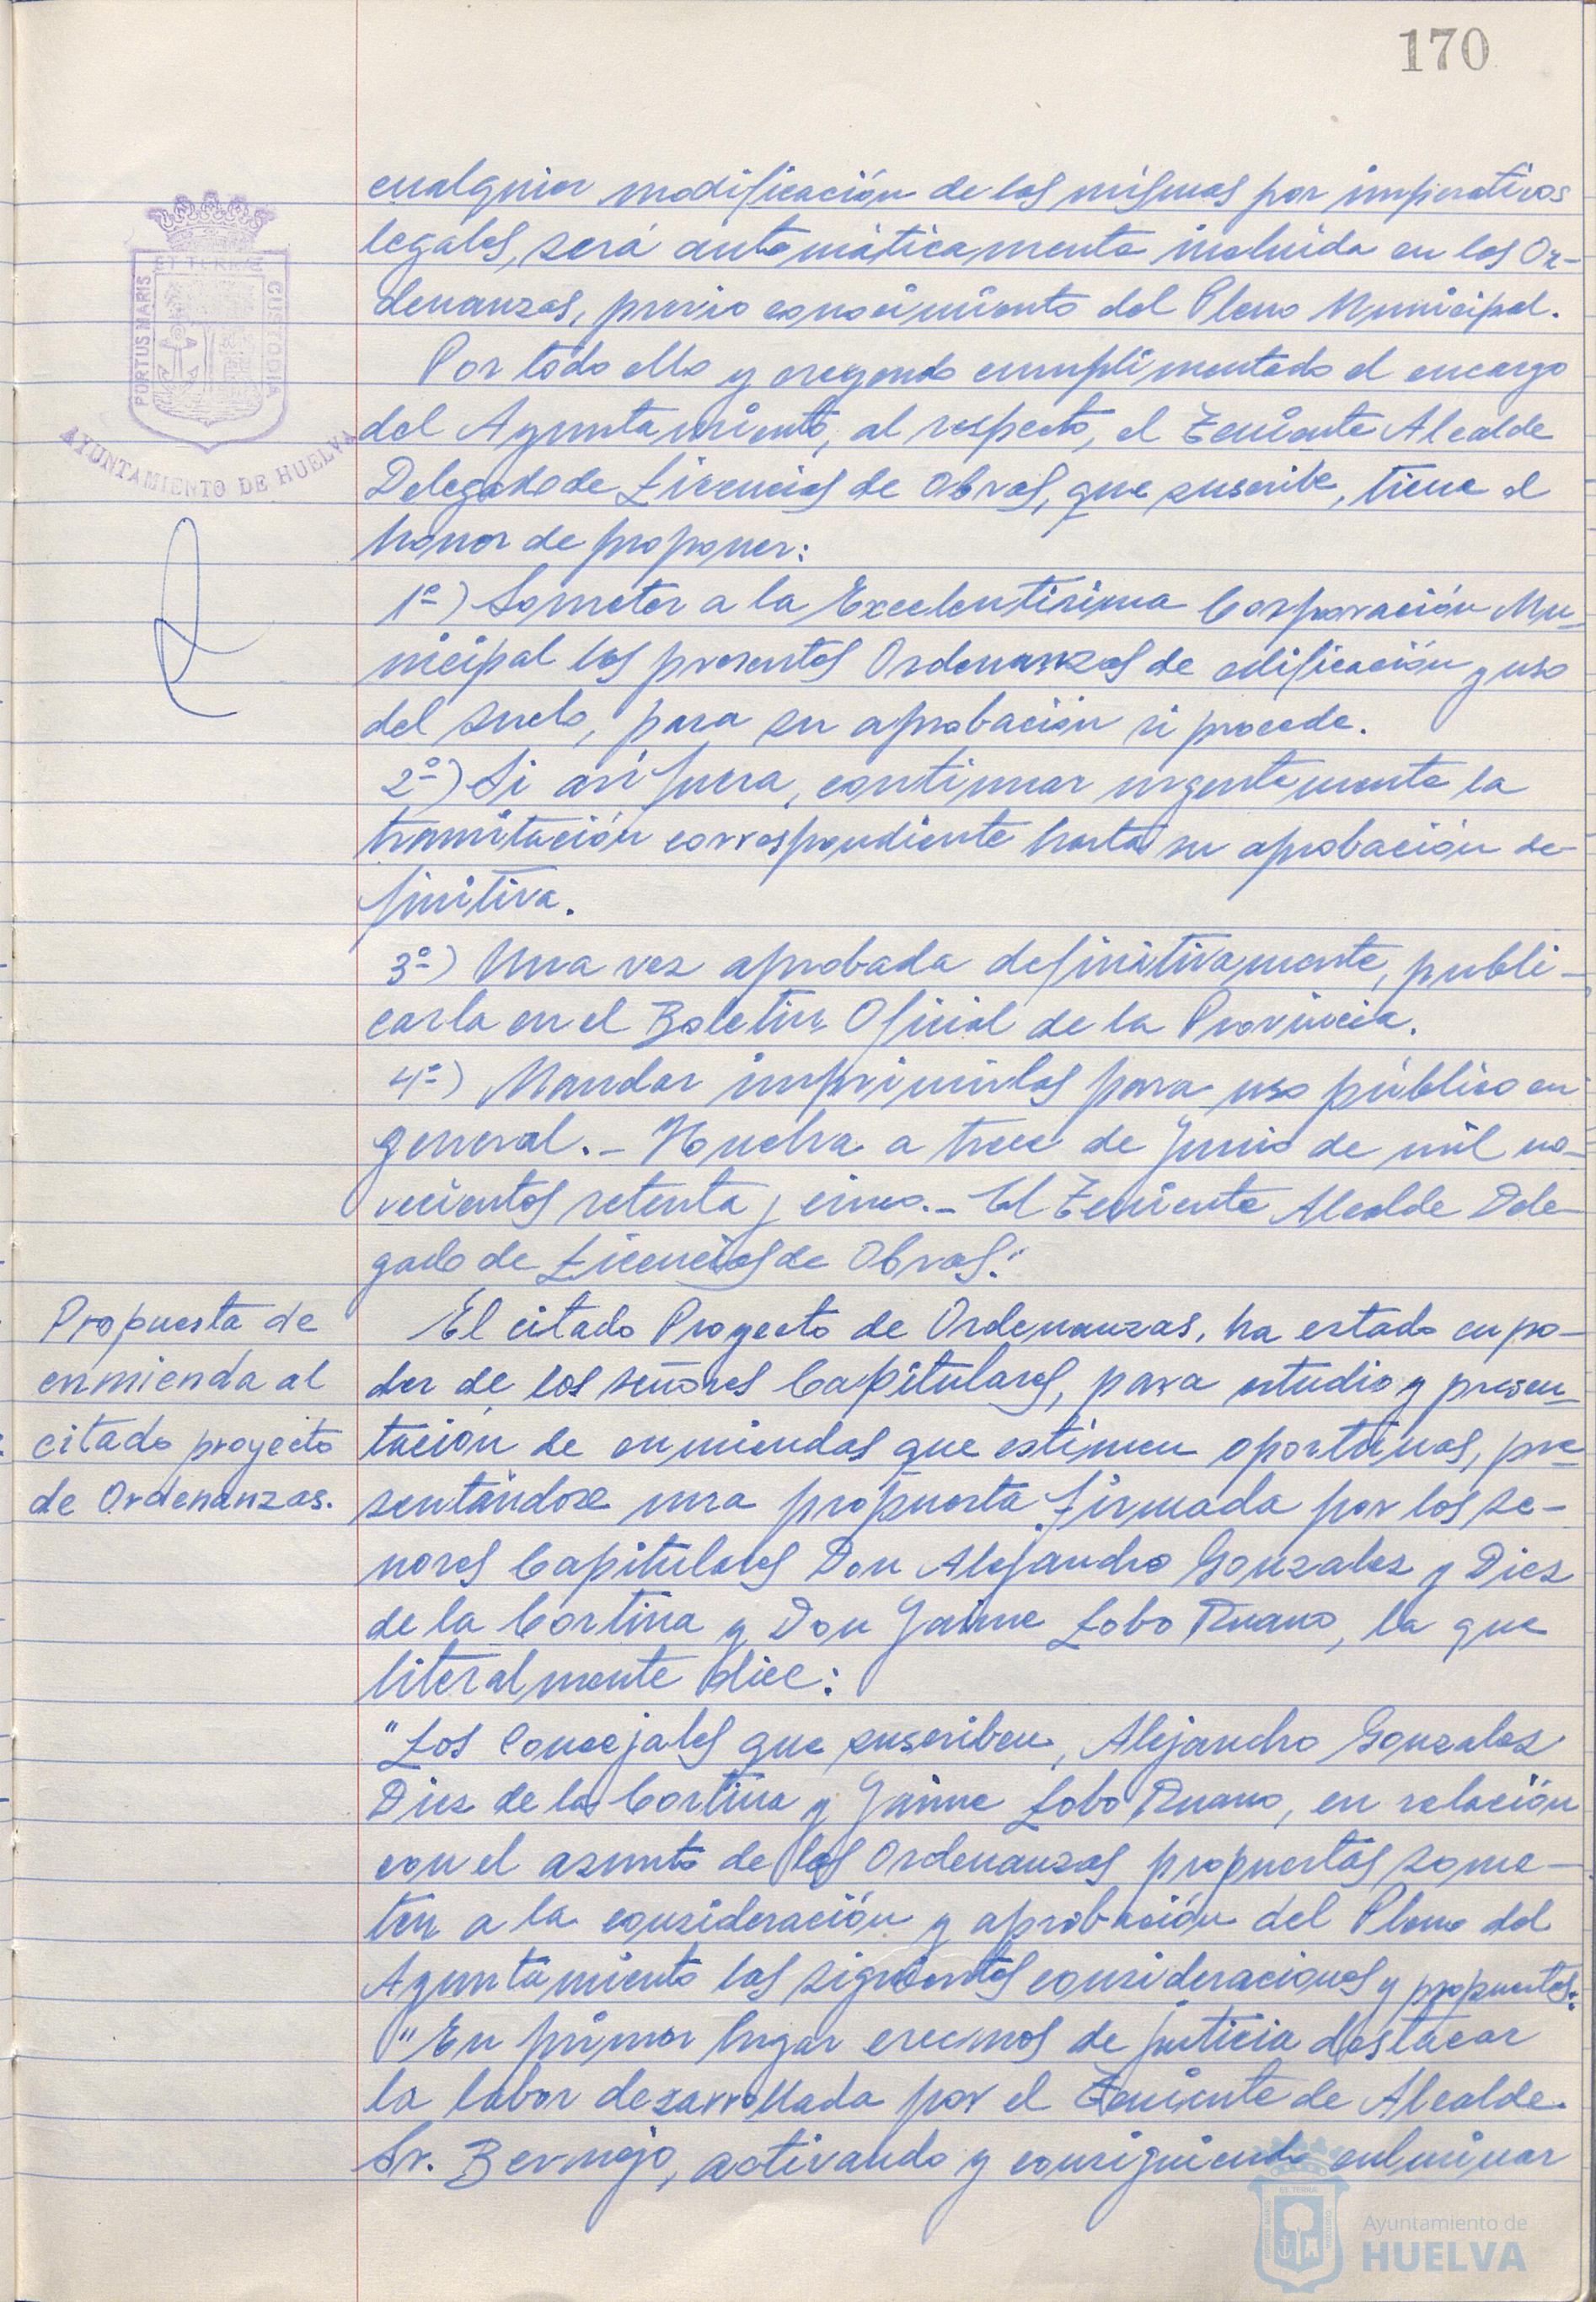 170
cualquier modificación de las mismas por imperativos
legales, será automáticamente incluida en las Or-
denanzas, previo conocimiento del Pleno Municipal.
Por todo ello y creyendo cumplimentado el encargo
del Ayuntamiento, al respecto, el Teniente Alcalde
Delegado de Licencias de Obras, que suscribe, tiene el
honor de proponer:
1º) Someter a la Excelentísima Corporación Mu-
nicipal las presentes Ordenanzas de edificación y uso
del suelo, para su aprobación si procede.
2º) Si así fuera, continuar urgentemente la
tramitación correspondiente hasta su aprobación de-
finitiva.
3º) Una vez aprobada definitivamente, publi-
carla en el Boletin Oficial de la Provincia.
4º) Mandar imprimirlas para uso público en
general.- Huelva a trece de Junio de mil no-
vecientos setenta y cinco.- El Teniente Alcalde Dele-
gado de Licencias de Obras."
Propuesta de
enmienda al
citado proyecto
de Ordenanzas.
El citado Proyecto de Ordenanzas, ha estado en po-
der de los señores Capitulares, para estudio y presen-
tación de enmiendas que estimen oportunas, pre-
sentándose una propuesta firmada por los se-
ñores Capitulares Don Alejandro Gonzalez y Diez
de la Cortina y Don Jaime Lobo Ruano, la que
literalmente dice:
"Los Concejales que suscriben, Alejandro Gonzalez
Diez de la Cortina y Jaime Lobo Ruano, en relación
con el asunto de las Ordenanzas propuestas some-
ten a la consideración y aprobación del Pleno del
Ayuntamiento las siguientes consideraciones y propuestas:
"En primer lugar creemos de justicia destacar
la labor desarrollada por el Teniente de Alcalde
Sr. Bermejo, activando y consiguiendo culminar
PORTUS MARIS
ET TERRAE
CUSTODIA
AYUNTAMIENTO DE HUELVA
Ayuntamiento de
HUELVA